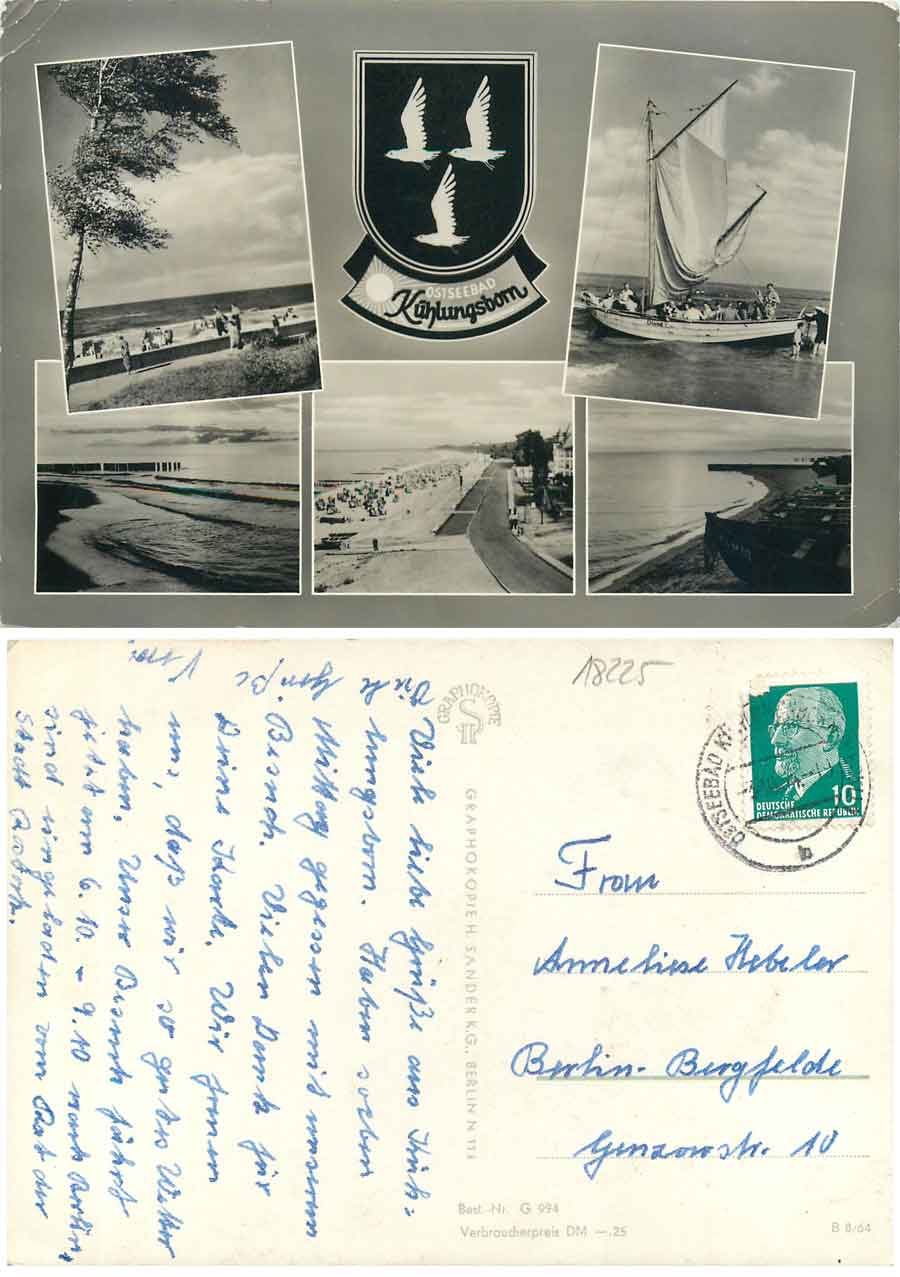 OSTSEEBAD
Kühlungsborn
18225
GRAPHOKOPIE
H S
OSTSEEBAD KÜ
b
10
DEUTSCHE
DEMOKRATISCHE REPUBLIK
Viele liebe Grüße aus Küh-
lungsborn. Haben soeben
Mittag gegessen mit unserem
Besuch. Vielen Dank für
Deine Karte. Wir freuen
uns, daß wir so gutes Wetter
haben. Unser Besuch fährt
jetzt am 6.10. - 9.10 nach Berlin,
sind eingeladen vom Rat der
Stadt
Viele
Grüße
GRAPHOKOPIE H. SANDER K.G., BERLIN N 113
Frau
Anneliese Hebeler
Berlin-Bergfelde
Genzowstr. 10
Best.-Nr. G 994
Verbraucherpreis DM —.25
B 8/64